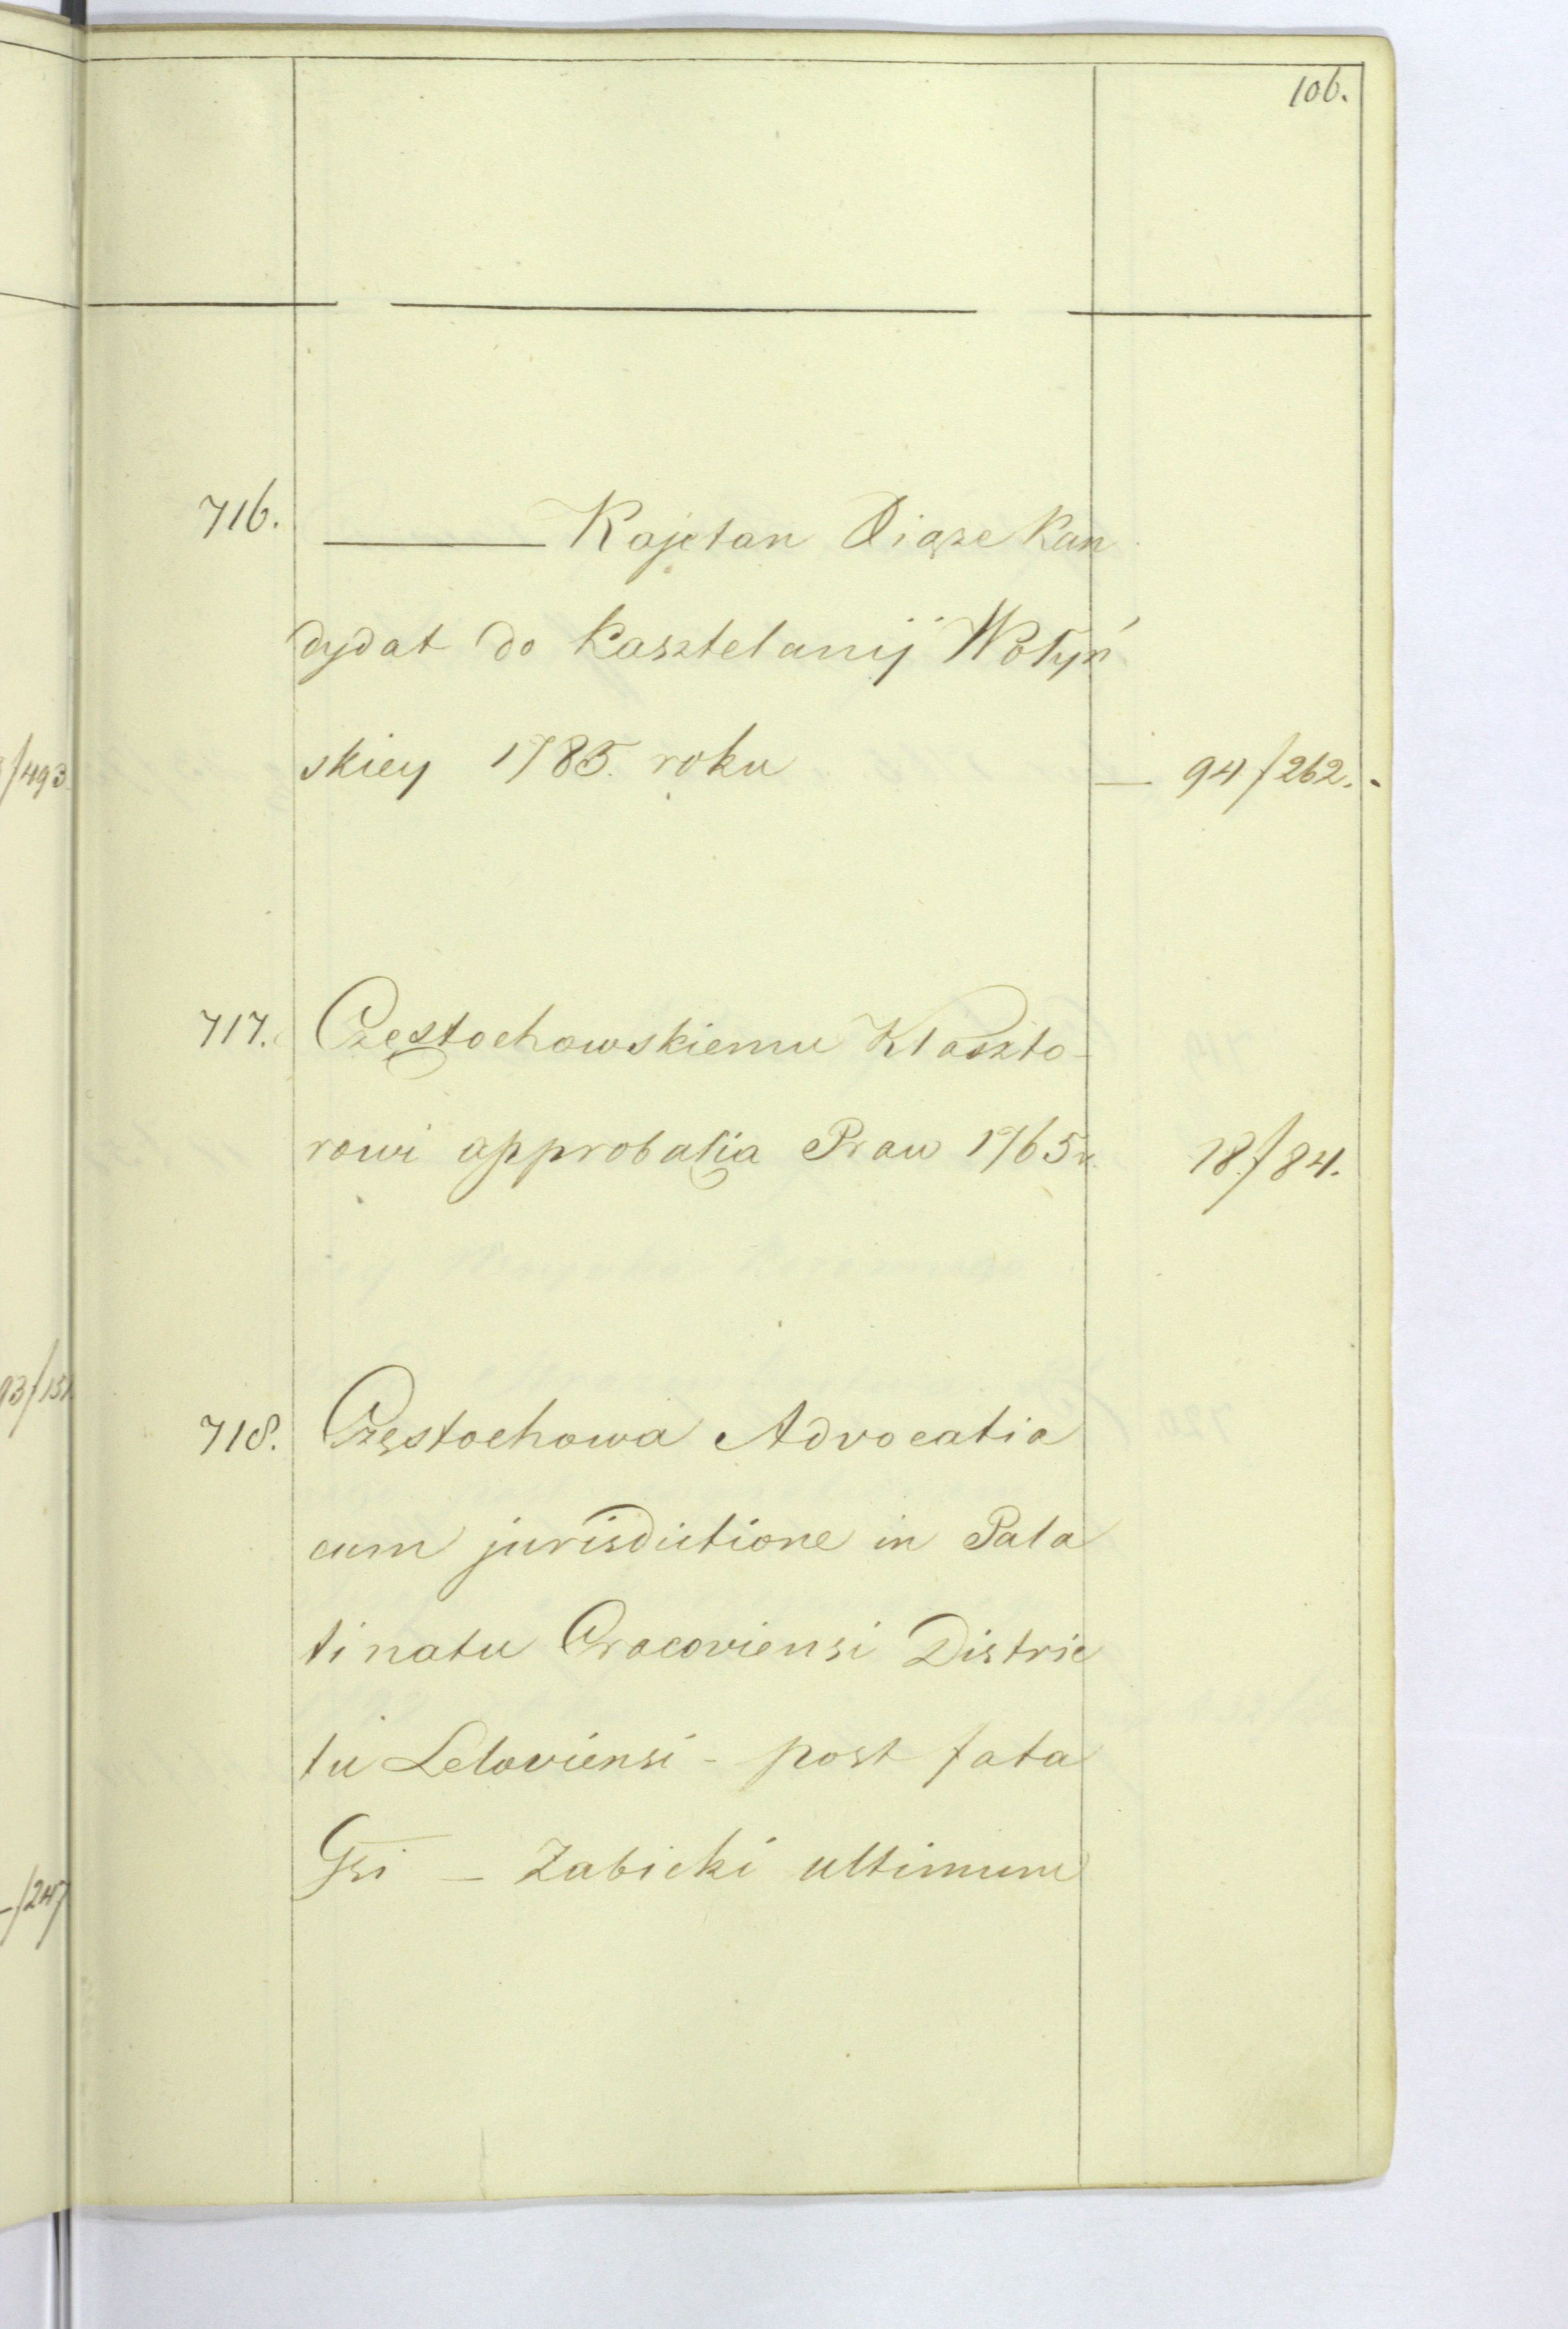 106.
716. ——— Kajetan Xiąże Kan
dydat do Kasztelanij Wołyń
skiey 1785. roku — 94/262.
717. Częstochowskiemu Klaszto-
rowi approbatia Praw 1765 r. 18/84.
718. Częstochowa Advocatia
cum jurisdictione in Pala
tinatu Cracoviensi Distric
tu Leloviensi - post fata
Gsi — Zabicki ultimum
/493
93/151
/247